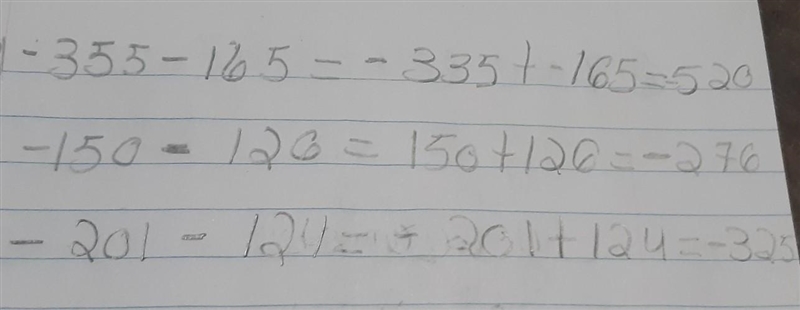 - 355 - 165 = - 335 + -165 = -520
-150 - 126 = 150 + 126 = -276
- 201 - 124 = - 201 + 124 = -325